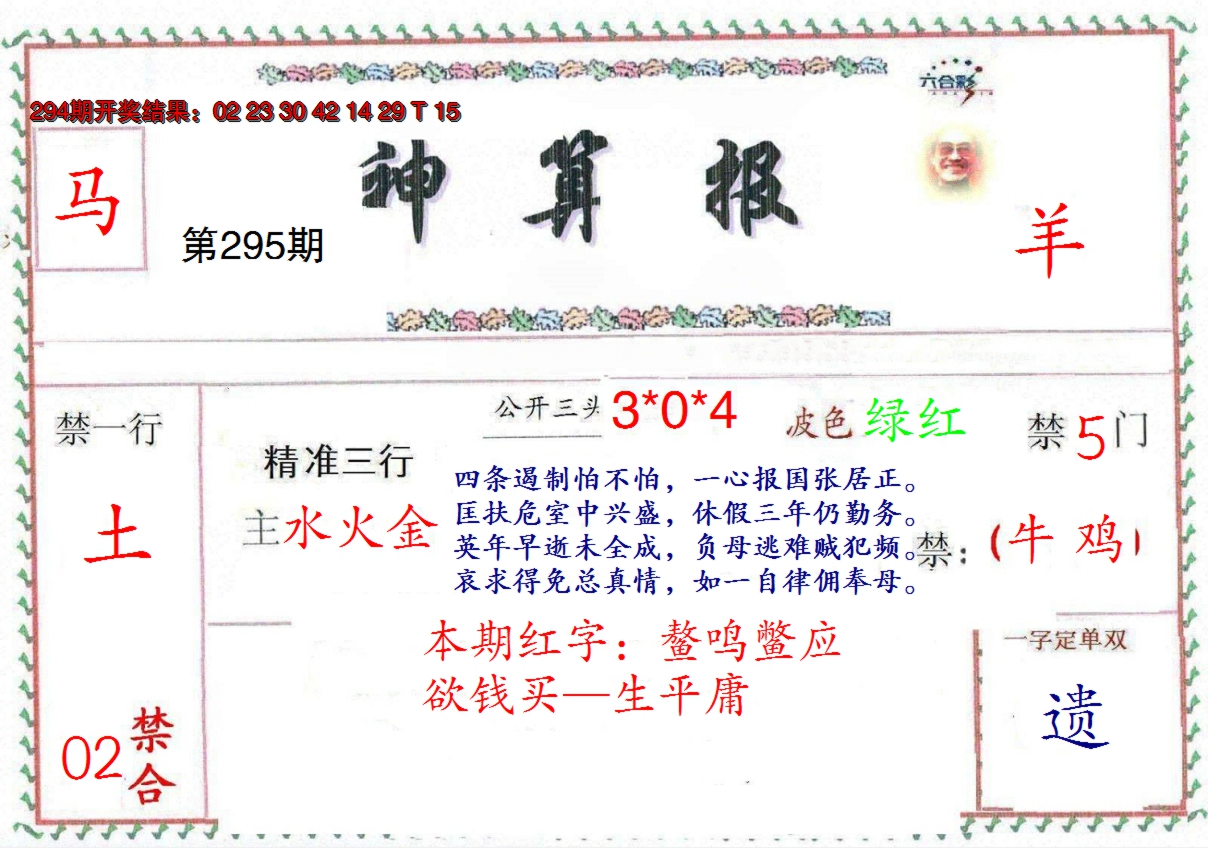 六合彩
294期开奖结果：02 23 30 42 14 29 T 15
神算报
马
第295期
羊
公开三头 3*0*4
波色 绿红
禁5门
禁一行
土
精准三行
主水火金
四条遏制怕不怕，一心报国张居正。
匡扶危室中兴盛，休假三年仍勤务。
英年早逝未全成，负母逃难贼犯频。
哀求得免总真情，如一自律佣奉母。
禁：（牛 鸡）
本期红字：鳌鸣鳖应
欲钱买—生平庸
一字定单双
遗
02禁合